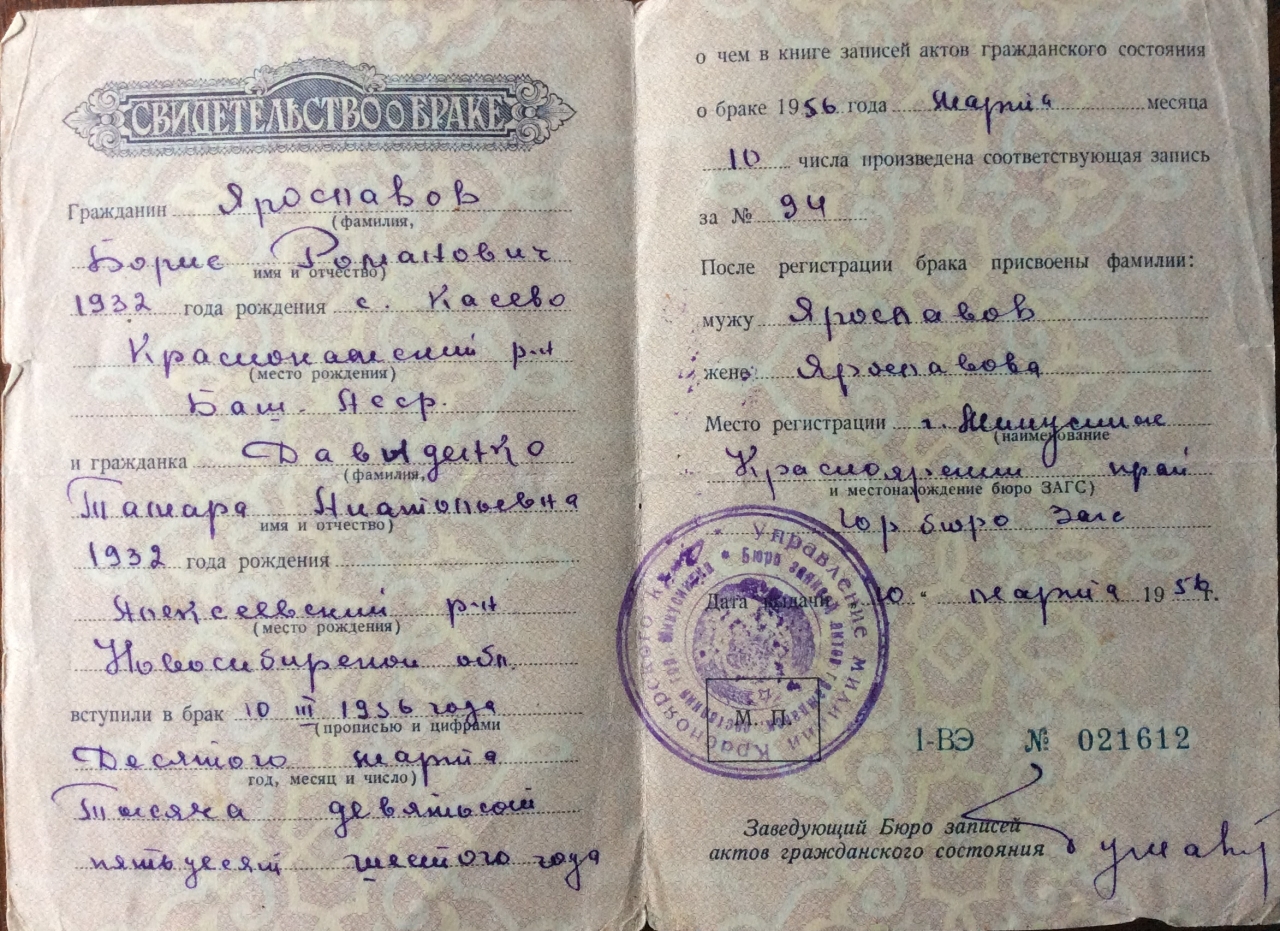 СВИДЕТЕЛЬСТВО О БРАКЕ
Гражданин Ярославов
(фамилия,
Борис Романович
имя и отчество)
1932 года рождения с. Касево
Краснокамский р-н
(место рождения)
Баш. Асср.
и гражданка Давыденко
(фамилия,
Тамара Анатольевна
имя и отчество)
1932 года рождения
Алексеевский р-н
(место рождения)
Новосибирской обл.
вступили в брак 10 III 1956 года
(прописью и цифрами
Десятого марта
год, месяц и число)
Тысяча девятьсот
пятьдесят шестого года
о чем в книге записей актов гражданского состояния
о браке 1956 года Марта месяца
10 числа произведена соответствующая запись
за № 94
После регистрации брака присвоены фамилии:
мужу Ярославов
жене Ярославова
Место регистрации г. Минусинск
(наименование
Красноярский край
и местонахождение бюро ЗАГС)
Гор бюро Загс
Дата выдачи 10 " марта 1956 г.
Управление милиции Красноярского края
Бюро записей актов гражданского состояния гор. Минусинска
М. П.
I-ВЭ № 021612
Заведующий Бюро записей
актов гражданского состояния